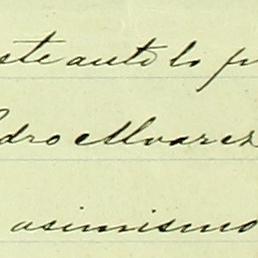 este auto lo
edro Alvarez
asimismo